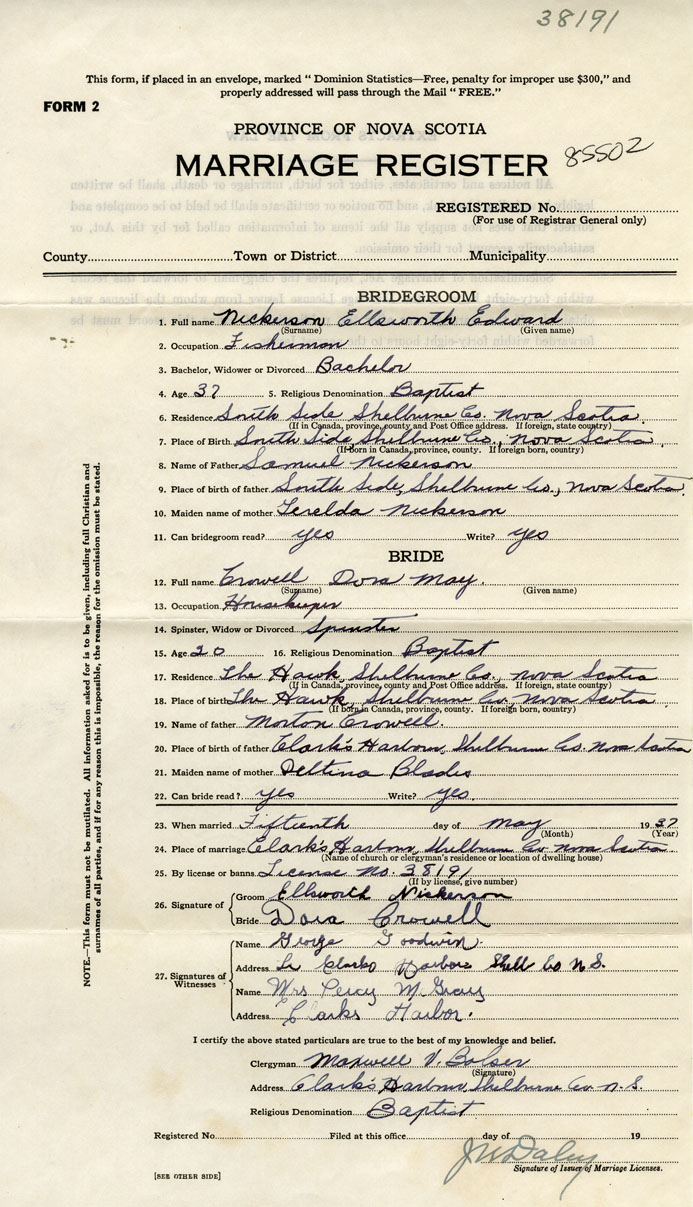 38191
This form, if placed in an envelope, marked “ Dominion Statistics—Free, penalty for improper use $300,” and
properly addressed will pass through the Mail “ FREE.”
FORM 2
PROVINCE OF NOVA SCOTIA
MARRIAGE REGISTER 85502
REGISTERED No.
(For use of Registrar General only)
County Town or District Municipality
BRIDEGROOM
1. Full name Nickerson Ellsworth Edward
(Surname) (Given name)
2. Occupation Fisherman
3. Bachelor, Widower or Divorced Bachelor
4. Age 37 5. Religious Denomination Baptist
6. Residence South Side Shelburne Co. Nova Scotia
(If in Canada, province, county and Post Office address. If foreign, state country)
7. Place of Birth South Side, Shelburne Co., Nova Scotia
(If born in Canada, province, county. If foreign born, country)
8. Name of Father Samuel Nickerson
9. Place of birth of father South Side, Shelburne Co., Nova Scotia
10. Maiden name of mother Nickerson
11. Can bridegroom read? yes Write? yes
BRIDE
12. Full name Crowell Dora May.
(Surname) (Given name)
13. Occupation Housekeeper
14. Spinster, Widow or Divorced Spinster
15. Age 20 16. Religious Denomination Baptist
17. Residence The Hawk, Shelburne Co., Nova Scotia
(If in Canada, province, county and Post Office address. If foreign, state country)
18. Place of birth The Hawk, Shelburne Co., Nova Scotia
(If born in Canada, province, county. If foreign born, country)
19. Name of father Morton Crowell.
20. Place of birth of father Clark's Harbour, Shelburne Co. Nova Scotia
21. Maiden name of mother Blades
22. Can bride read? yes Write? yes.
23. When married Fifteenth day of May 1937
(Month) (Year)
24. Place of marriage Clark's Harbour, Shelburne Co. Nova Scotia
(Name of church or clergyman's residence or location of dwelling house)
25. By license or banns License No. 38191
(If by license, give number)
26. Signature of Groom Ellsworth Nickerson
Bride Dora Crowell
27. Signatures of Witnesses
Name George Goodwin.
Address Clarks Harbor Shell Co N.S.
Name Mrs Percy McGray
Address Clarks Harbor.
I certify the above stated particulars are true to the best of my knowledge and belief.
Clergyman Maxwell V. Bolser
(Signature)
Address Clark's Harbour, Shelburne Co. N.S.
Religious Denomination Baptist
Registered No. Filed at this office day of 19
Daley
Signature of Issuer of Marriage Licenses.
[SEE OTHER SIDE]
NOTE.—This form must not be mutilated. All information asked for is to be given, including full Christian and
surnames of all parties, and if for any reason this is impossible, the reason for the omission must be stated.